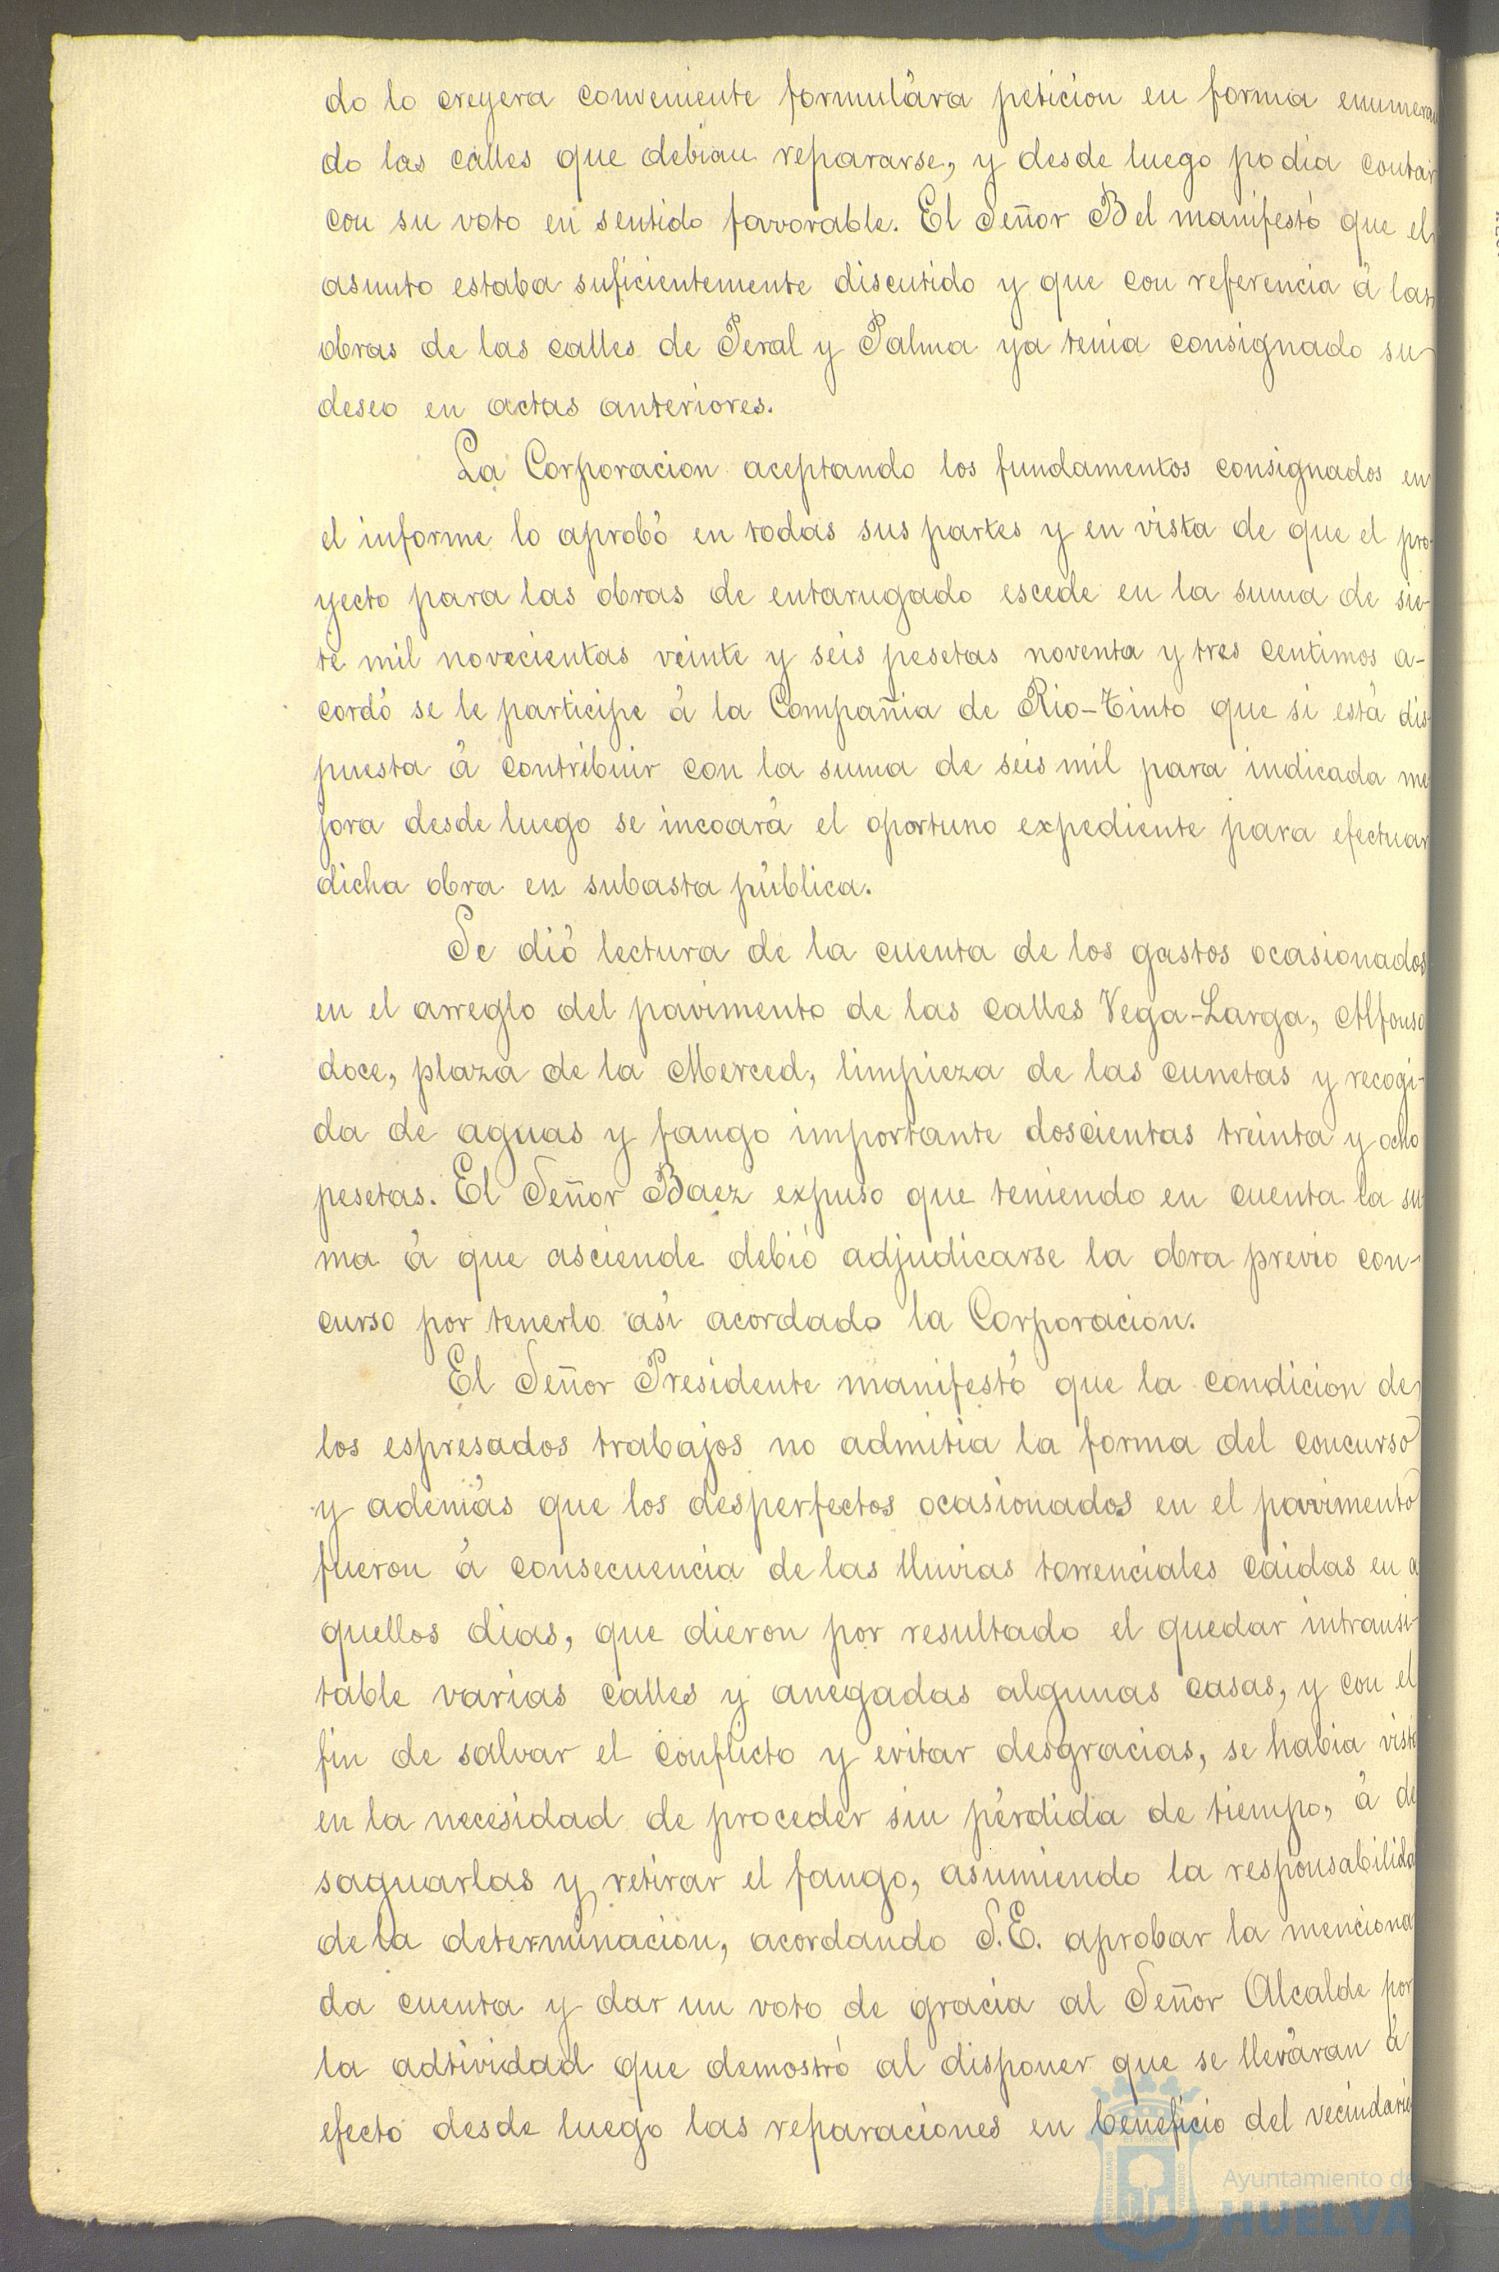 do lo creyera conveniente formulára peticion en forma enumeran
do las calles que debian repararse, y desde luego podia contar
con su voto en sentido favorable. El Señor Bel manifestó que el
asunto estaba suficientemente discutido y que con referencia á las
obras de las calles de Peral y Palma ya tenia consignado su
deseo en actas anteriores.
La Corporacion aceptando los fundamentos consignados en
el informe lo aprobó en todas sus partes y en vista de que el pro-
yecto para las obras de entarugado escede en la suma de sie-
te mil novecientas veinte y seis pesetas noventa y tres centimos a-
cordó se le participe á la Compañia de Rio-Tinto que si está dis-
puesta á contribuir con la suma de seis mil para indicada me
jora desde luego se incoará el oportuno expediente para efectuar
dicha obra en subasta pública.
Se dió lectura de la cuenta de los gastos ocasionados
en el arreglo del pavimento de las calles Vega-Larga, Alfonso
doce, plaza de la Merced, limpieza de las cunetas y recogi-
da de aguas y fango importante doscientas treinta y ocho
pesetas. El Señor Baez expuso que teniendo en cuenta la su
ma á que asciende debió adjudicarse la obra previo con-
curso por tenerlo asi acordado la Corporacion.
El Señor Presidente manifestó que la condicion de
los espresados trabajos no admitia la forma del concurso
y además que los desperfectos ocasionados en el pavimento
fueron á consecuencia de las lluvias torrenciales caidas en a
quellos dias, que dieron por resultado el quedar intransi-
table varias calles y anegadas algunas casas, y con el
fin de salvar el conflicto y evitar desgracias, se habia visto
en la necesidad de proceder sin pérdida de tiempo, á de
saguarlas y retirar el fango, asumiendo la responsabilidad
de la determinacion, acordando S.E. aprobar la menciona
da cuenta y dar un voto de gracia al Señor Alcalde por
la adtividad que demostró al disponer que se lleváran á
efecto desde luego las reparaciones en beneficio del vecindario
Ayuntamiento de
HUELVA